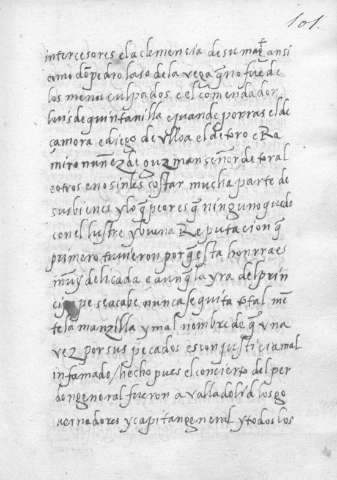 101.
intercesores e la clemencia de su mag̃t ansi
como dõ pedro laso de la vega q̃ no fue de
los menos culpados e el comendador
luis de quintanilla e juan de porras el de
çamora e diego de ulloa el de toro e Ra
miro nuñez de guzman señor de toral
e otros e no sin les costar mucha parte de
sus bienes y lo q̃ peor es q̃ ninguno quedo
con el lustre y buena Reputacion q̃
primero tuvieron porq̃ esta honrra es
muy delicada e aunq̃ la yra del prin
cipe se acabe nunca se quita total mẽ
te la manzilla y mal nombre de q̃ una
vez por sus pecados es con justicia mal
infamado / hecho pues el concierto del per
don general fueron a valladolid los go
vernadores y capitan general y todos los